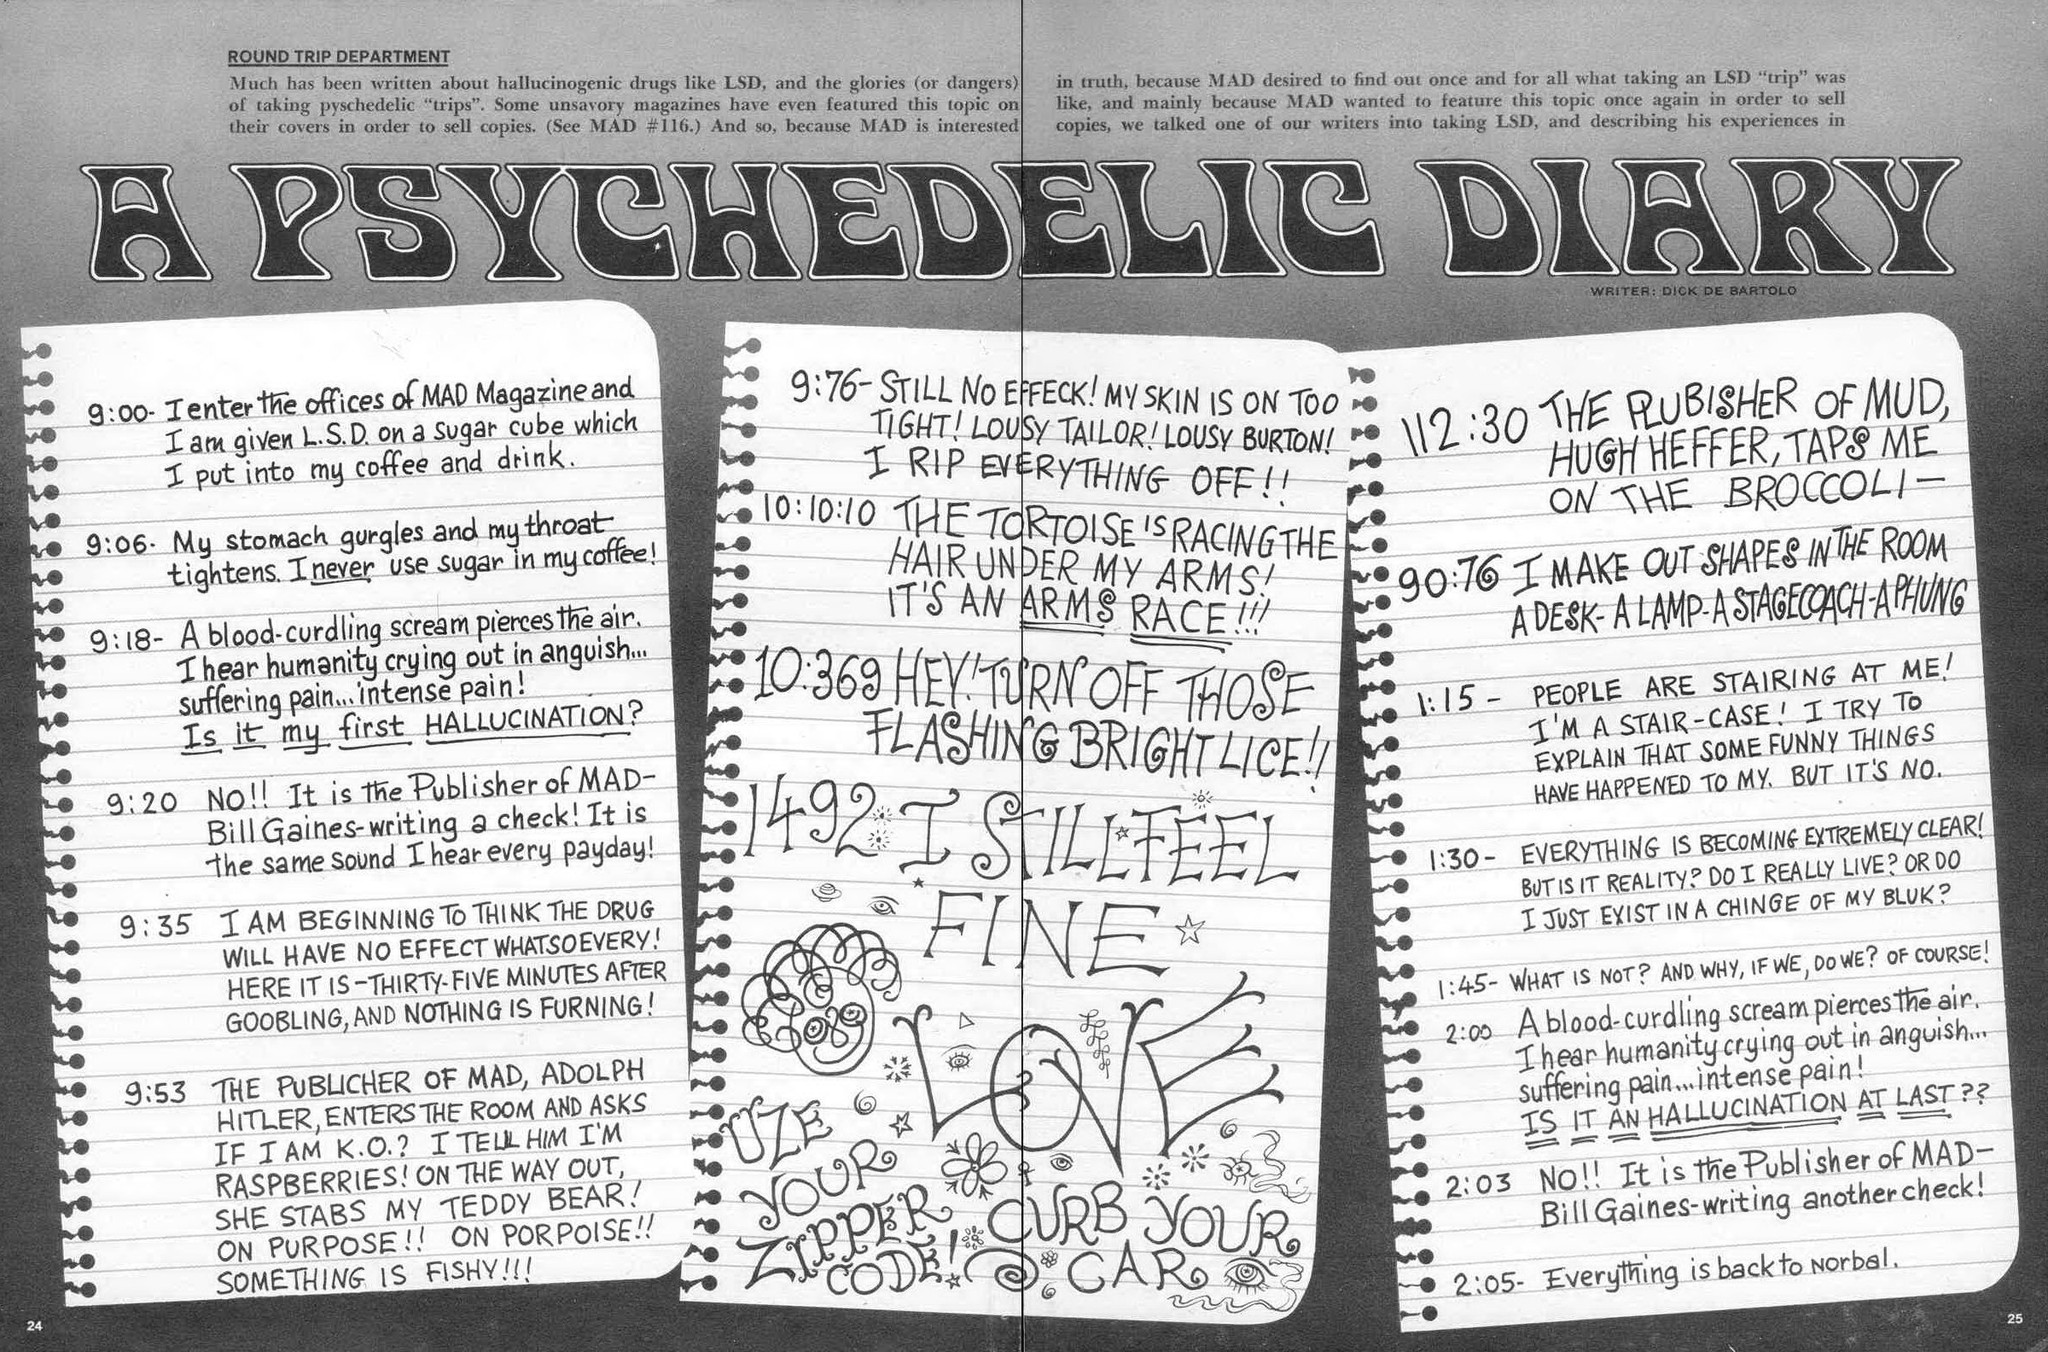 ROUND TRIP DEPARTMENT
Much has been written about hallucinogenic drugs like LSD, and the glories (or dangers)
of taking pyschedelic "trips". Some unsavory magazines have even featured this topic on
their covers in order to sell copies. (See MAD #116.) And so, because MAD is interested
in truth, because MAD desired to find out once and for all what taking an LSD "trip" was
like, and mainly because MAD wanted to feature this topic once again in order to sell
copies, we talked one of our writers into taking LSD, and describing his experiences in
A PSYCHEDELIC DIARY
WRITER: DICK DE BARTOLO
9:00- I enter the offices of MAD Magazine and
I am given L.S.D. on a sugar cube which
I put into my coffee and drink.
9:06- My stomach gurgles and my throat
tightens. I never use sugar in my coffee!
9:18- A blood-curdling scream pierces the air.
I hear humanity crying out in anguish...
suffering pain... intense pain!
Is it my first HALLUCINATION?
9:20 NO!! It is the Publisher of MAD-
Bill Gaines-writing a check! It is
the same sound I hear every payday!
9:35 I AM BEGINNING TO THINK THE DRUG
WILL HAVE NO EFFECT WHATSOEVERY!
HERE IT IS-THIRTY-FIVE MINUTES AFTER
GOOBLING, AND NOTHING IS FURNING!
9:53 THE PUBLICHER OF MAD, ADOLPH
HITLER, ENTERS THE ROOM AND ASKS
IF I AM K.O.? I TELL HIM I'M
RASPBERRIES! ON THE WAY OUT,
SHE STABS MY TEDDY BEAR!
ON PURPOSE!! ON PORPOISE!!
SOMETHING IS FISHY!!!
9:76- STILL NO EFFECK! MY SKIN IS ON TOO
TIGHT! LOUSY TAILOR! LOUSY BURTON!
I RIP EVERYTHING OFF!!
10:10:10 THE TORTOISE IS RACING THE
HAIR UNDER MY ARMS!
IT'S AN ARMS RACE!!!
10:369 HEY! TURN OFF THOSE
FLASHING BRIGHT LICE!!
1492 I STILL FEEL
FINE
LOVE
UZE
YOUR
ZIPPER
CODE!
CURB YOUR
CAR
112:30 THE PLUBISHER OF MUD,
HUGH HEFFER, TAPS ME
ON THE BROCCOLI-
90:76 I MAKE OUT SHAPES IN THE ROOM
A DESK-A LAMP-A STAGECOACH-A PHUNG
1:15- PEOPLE ARE STAIRING AT ME!
I'M A STAIR-CASE! I TRY TO
EXPLAIN THAT SOME FUNNY THINGS
HAVE HAPPENED TO MY. BUT IT'S NO.
1:30- EVERYTHING IS BECOMING EXTREMELY CLEAR!
BUT IS IT REALITY? DO I REALLY LIVE? OR DO
I JUST EXIST IN A CHINGE OF MY BLUK?
1:45- WHAT IS NOT? AND WHY, IF WE, DO WE? OF COURSE!
2:00 A blood-curdling scream pierces the air.
I hear humanity crying out in anguish...
suffering pain...intense pain!
IS IT AN HALLUCINATION AT LAST??
2:03 NO!! It is the Publisher of MAD-
Bill Gaines-writing another check!
2:05- Everything is back to Norbal.
24
25